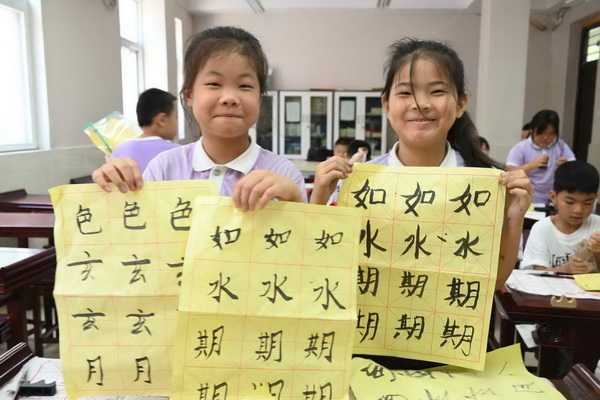 色 色 色
玄 玄 玄
玄 玄
月 月
如 如 如
水 水 水
期 期 期
如 如 如
水 水 水
期 期 期
期 期 期